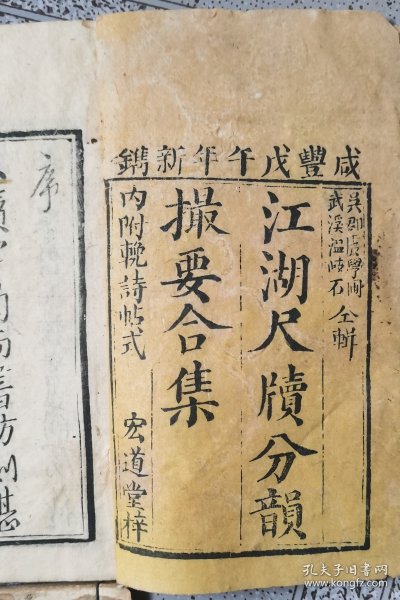 咸豐戊午年新鐫
武溪溫岐石
仝輯
江湖尺牘分韻
撮要合集
內附輓詩帖式
宏道堂梓
序
孔夫子旧书网
www.kongfz.com